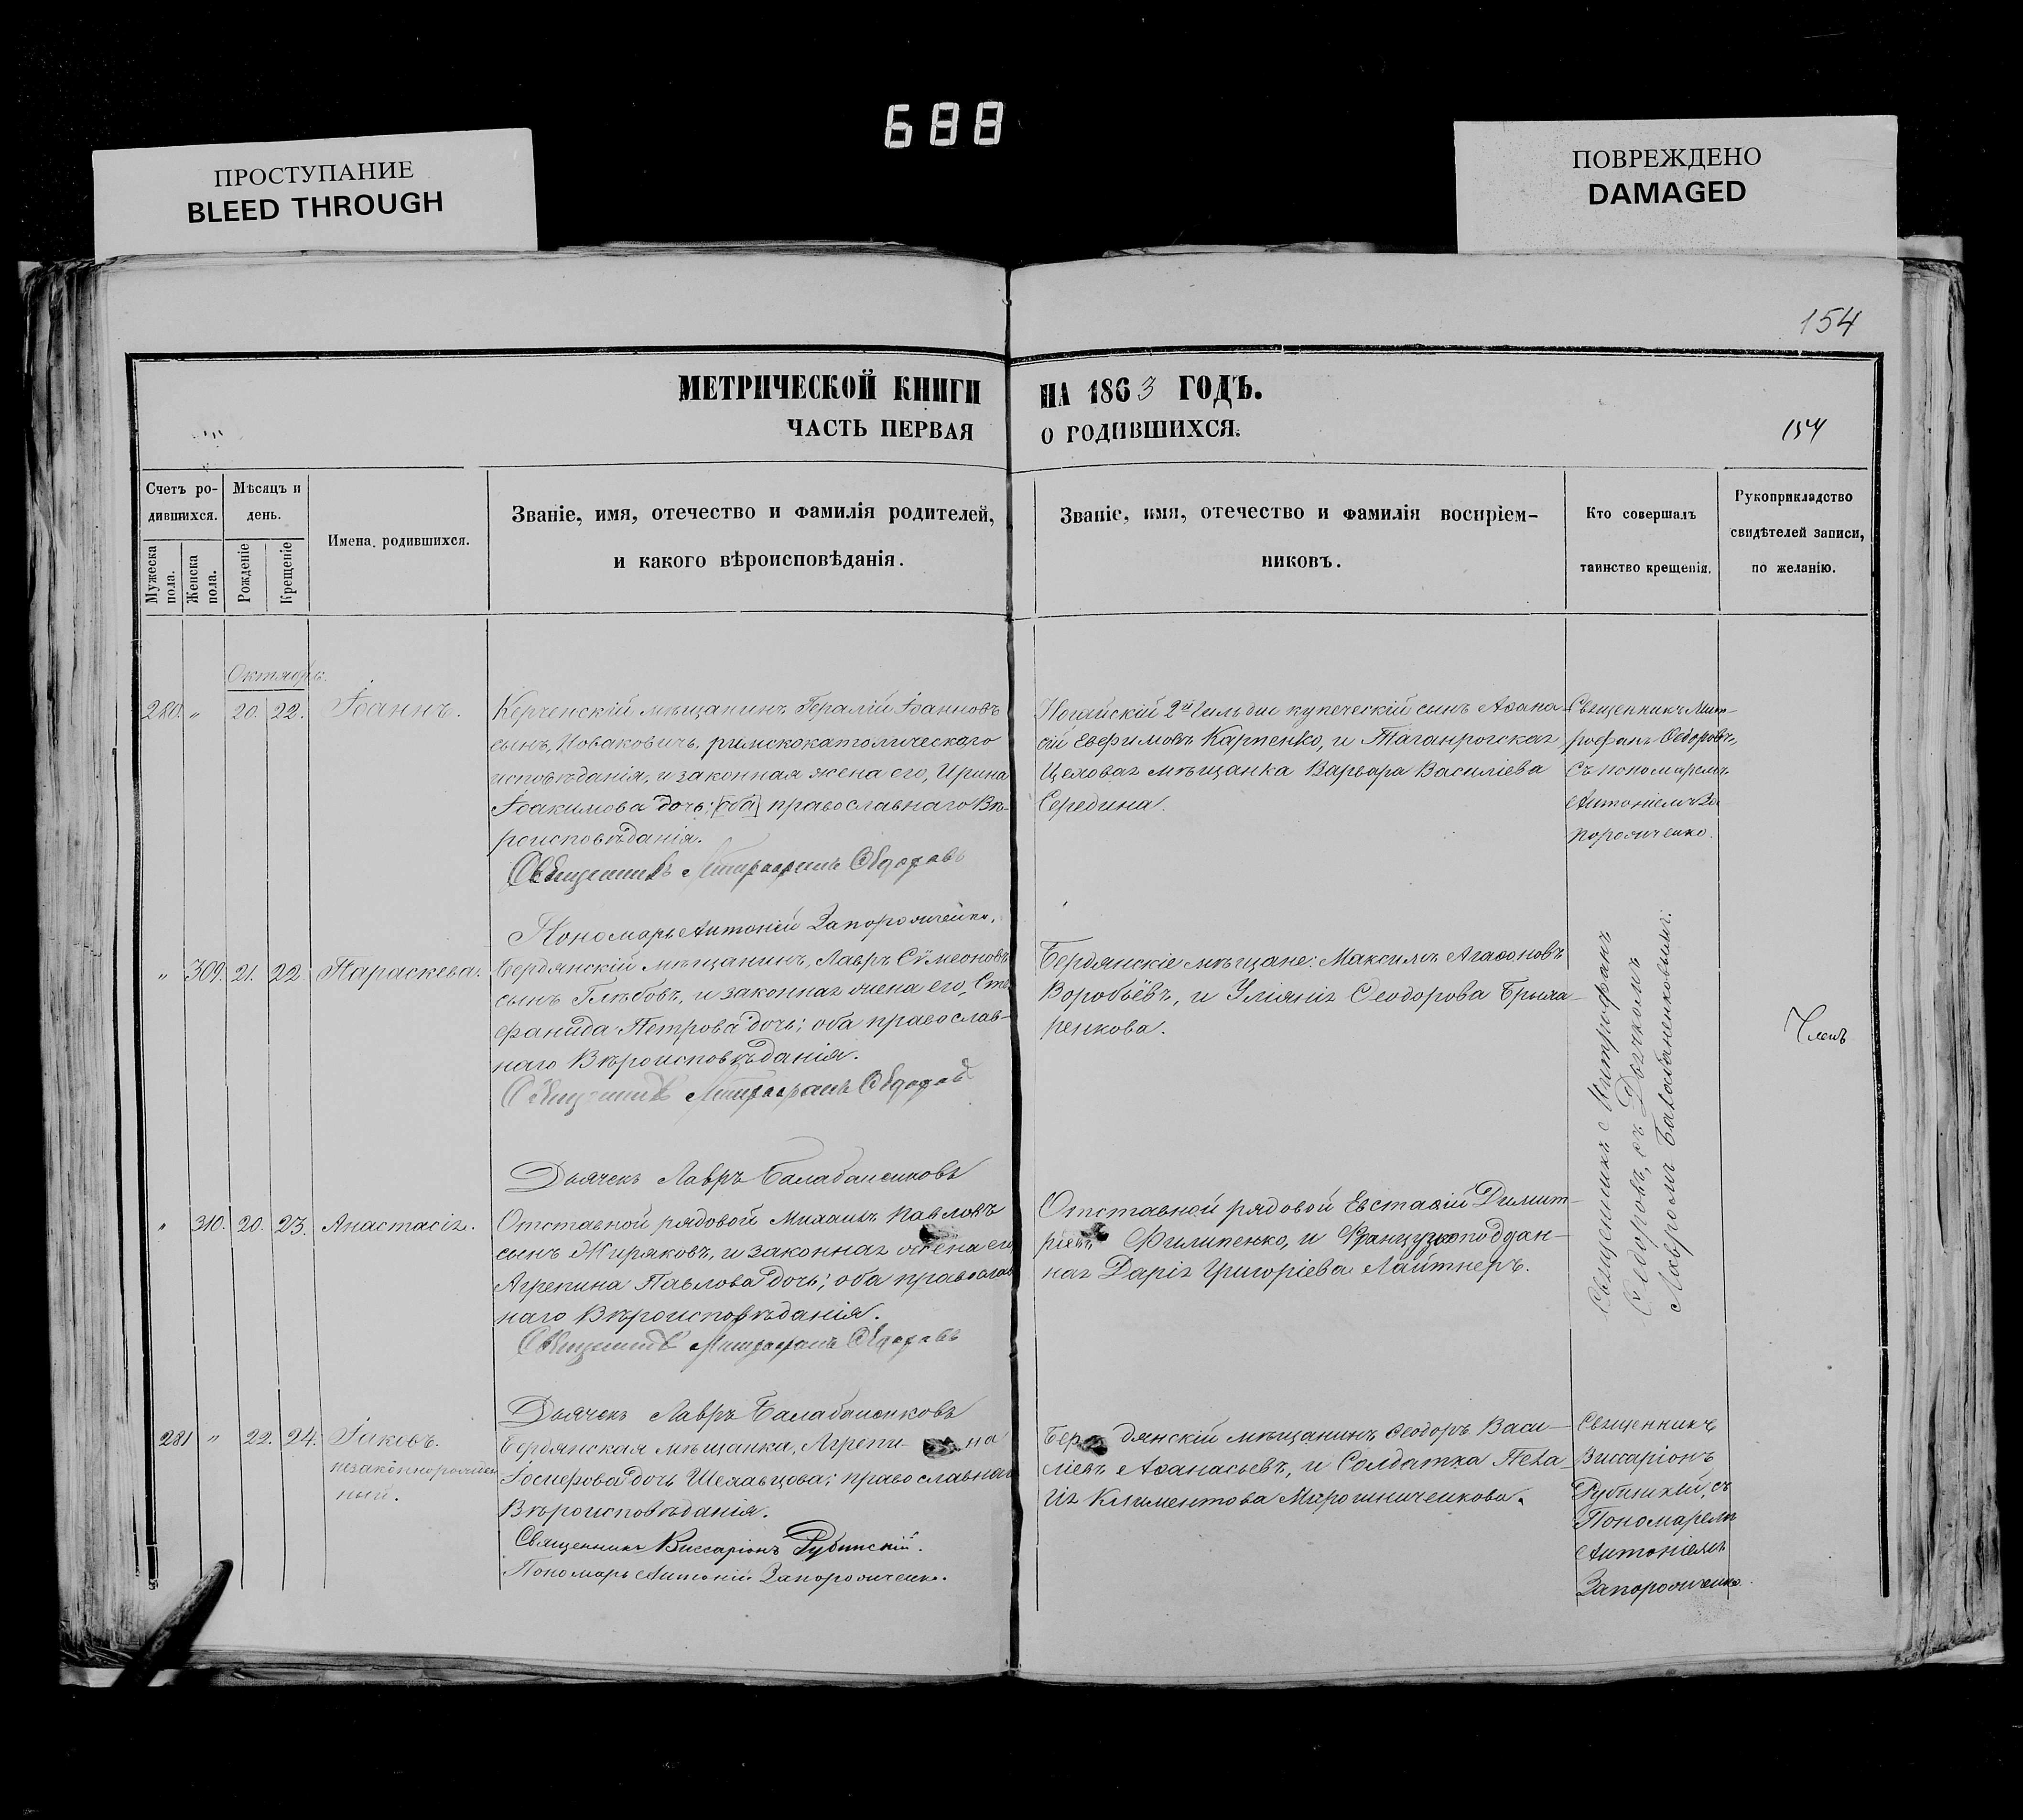 688
ПРОСТУПАНИЕ
BLEED THROUGH
ПОВРЕЖДЕНО
DAMAGED
154
МЕТРИЧЕСКОЙ КНИГИ НА 1863 ГОДЪ.
ЧАСТЬ ПЕРВАЯ О ГОДИВШИХСЯ.
154
Счетъ ро-
дившихся.
Мужеска пола.
Женска пола.
Мѣсяцъ и
день.
Рожденіе
Крещеніе
Имена родившихся.
Званіе, имя, отечество и фамилія родителей,
и какого вѣроисповѣданія.
Званіе, имя, отечество и фамилія воспріем-
никовъ.
Кто совершалъ
таинство крещенія.
Рукоприкладство
свидѣтелей записи,
по желанію.
Октябрь.
280. " 20. 22. Іоаннъ.
Керченскій мѣщанинъ Гералій Іоанновъ
сынъ, Новаковичь, римскокатолическаго
исповѣданія, и законная жена его, Ирина
Іоакимова дочь; [оба] православнаго Вѣ-
роисповѣданія.
Священникъ Митрофанъ Ѳедоровъ
Пономарь Антоній Запорожченко.
Ногайскій 2й Гильдіи купеческій сынъ Аѳана-
сій Евфимовъ Карпенко, и Таганрогская
Цеховая мѣщанка Варвара Василіева
Середина.
Священникъ Мит-
рофанъ Ѳедоровъ,
съ пономаремъ
Антоніемъ За
порожченко.
" 309. 21. 22. Параскева.
Бердянскій мѣщанинъ, Лавръ Сѵмеоновъ
сынъ Глѣбовъ, и законная жена его, Сте
фанида Петрова дочь; оба православ-
наго Вѣроисповѣданія.
Священникъ Митрофанъ Ѳедоровъ
Дьячекъ Лавръ Балабаненковъ
Бердянскіе мѣщане: Максимъ Агаѳоновъ
Воробьёвъ, и Уліянія Ѳеодорова
ренкова.
Священникъ Митрофанъ
Ѳедоровъ, съ Дьячкомъ
Лавромъ Балабаненковымъ.
Членъ
" 310. 20. 23. Анастасія.
Отставной рядовой Михаилъ Павловъ
сынъ Жиряковъ, и законная жена его
Агрепина Павлова дочь; оба православ
наго Вѣроисповѣданія.
Священникъ Митрофанъ Ѳедоровъ
Дьячекъ Лавръ Балабаненковъ
Отставной рядовой Евстаѳій Димит-
ріевъ Филипенко, и Французкоподдан-
ная Дарія Григоріева Лайтнеръ.
281 " 22. 24. Іаковъ.
незаконнорожден
ный.
Бердянская мѣщанка, Агрепи-на
Іосифова дочь Шелавцова; православнаго
Вѣроисповѣданія.
Священникъ Виссаріонъ Рубинскій.
Пономарь Антоній Запорожченко.
Бердянскій мѣщанинъ Ѳеодоръ Васи-
ліевъ Аѳанасьевъ, и Солдатка Пела
гія Климентова Мирошниченкова.
Священникъ
Виссаріонъ
Рубинскій, съ
Пономаремъ
Антоніемъ
Запорожченко.